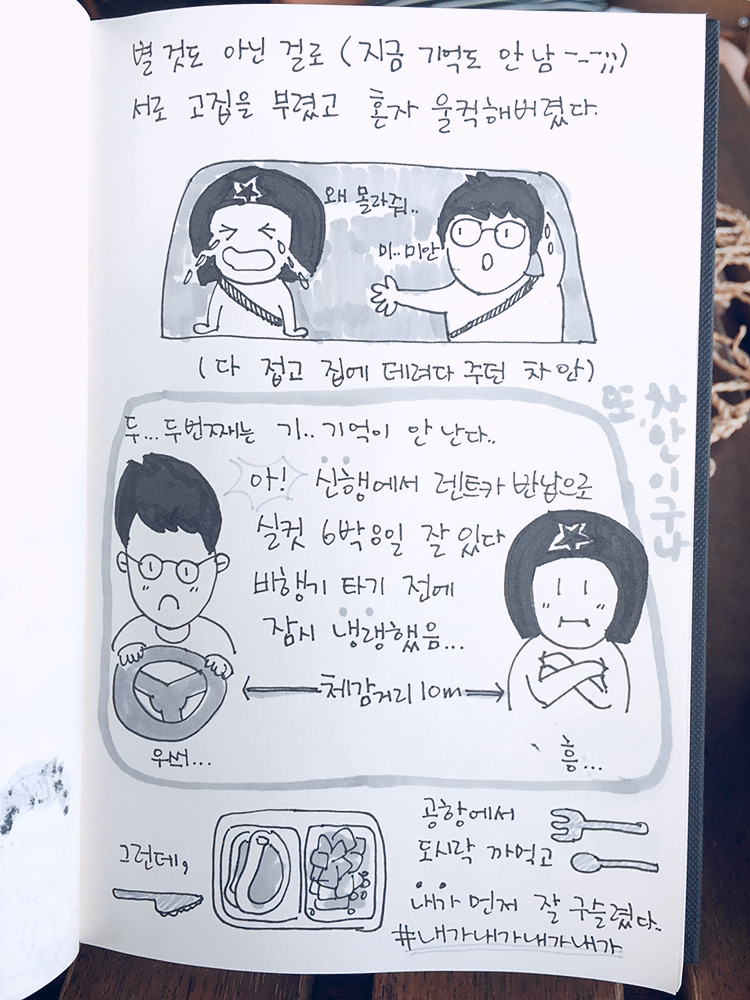 별 것도 아닌 걸로 (지금 기억도 안 남 -_-;;)
서로 고집을 부렸고 혼자 울컥해버렸다.
왜 몰라줘..
미..미안
(다 접고 집에 데려다 주던 차 안)
또, 차 안이구나
두...두번째는 기..기억이 안 난다..
아! 신행에서 렌트카 반납으로
실컷 6박8일 잘 있다
비행기 타기 전에
잠시 냉랭했음...
체감거리 10m
흥...
그런데,
공항에서
도시락 까먹고
내가 먼저 잘 구슬렸다.
#내가내가내가내가